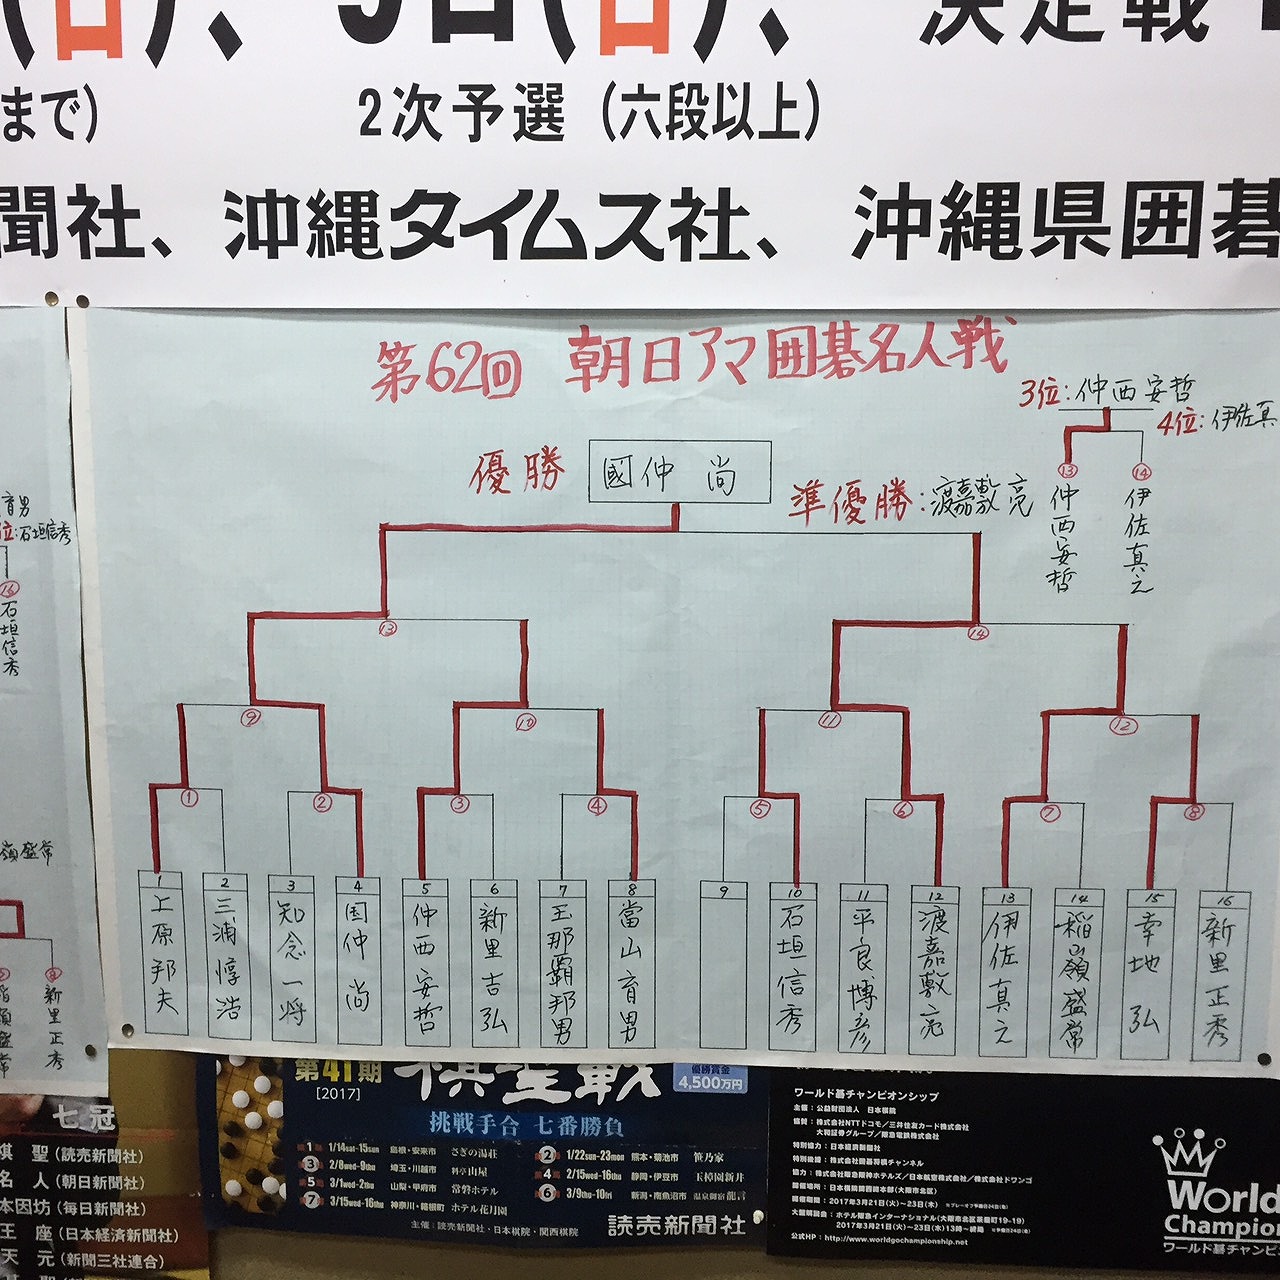 (日)、5日(日)、決定戦
まで)
2次予選(六段以上)
聞社、沖縄タイムス社、沖縄県囲碁
第62回 朝日アマ囲碁名人戦
3位:仲西安哲
4位:伊佐真
優勝 國仲 尚
準優勝:渡嘉敷 亮
⑬ 仲西安哲
⑭ 伊佐真之
育男
位:石垣信秀
⑯
石垣信秀
⑬
⑭
⑨
⑩
⑪
⑫
①
②
③
④
⑤
⑥
⑦
⑧
1 上原邦夫
2 三浦惇浩
3 知念一将
4 国仲尚
5 仲西安哲
6 新里吉弘
7 玉那覇邦男
8 當山育男
9
10 石垣信秀
11 平良博彦
12 渡嘉敷亮
13 伊佐真之
14 稲嶺盛常
15 幸地弘
16 新里正秀
嶺盛常
稲嶺盛常
新里正秀
七冠
棋 聖(読売新聞社)
名 人(朝日新聞社)
本因坊(毎日新聞社)
王 座(日本経済新聞社)
天 元(新聞三社連合)
第41期
[2017]
棋聖戦
優勝賞金
4,500万円
挑戦手合 七番勝負
1 1/14sat-15sun 島根・安来市 さぎの湯荘
2 1/22sun-23mon 熊本・菊池市 笹乃家
3 2/8wed-9thu 埼玉・川越市 料亭山屋
4 2/15wed-16thu 静岡・伊豆市 玉樟園新井
5 3/1wed-2thu 山梨・甲府市 常磐ホテル
6 3/9thu-10fri 新潟・南魚沼市 温泉御宿龍言
7 3/15wed-16thu 神奈川・箱根町 ホテル花月園
主催:読売新聞社・日本棋院・関西棋院
読売新聞社
ワールド碁チャンピオンシップ
主催:公益財団法人 日本棋院
協賛:株式会社NTTドコモ/三井住友カード株式会社
大和証券グループ/阪急電鉄株式会社
特別協力:日本経済新聞社
特別後援:株式会社囲碁将棋チャンネル
協力:株式会社阪急阪神ホテルズ/日本航空株式会社/株式会社ドワンゴ
開催場所:日本棋院関西総本部(大阪市北区)
開催期間:2017年3月21日(火)〜23日(木)
大盤解説会:ホテル阪急インターナショナル(大阪市北区茶屋町19-19)
2017年3月21日(火)〜23日(木)13時〜終局
公式HP:http://www.worldgochampionship.net
World
Champion
ワールド碁チャンピ